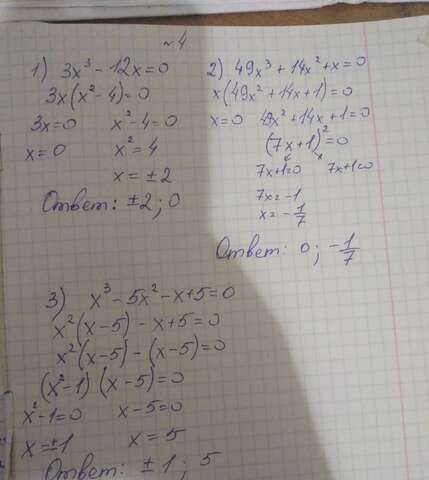 № 4
1) 3x³ - 12x = 0
3x(x² - 4) = 0
3x = 0 x² - 4 = 0
x = 0 x² = 4
x = ±2
Ответ: ±2 ; 0
2) 49x³ + 14x² + x = 0
x(49x² + 14x + 1) = 0
x = 0 49x² + 14x + 1 = 0
(7x + 1)² = 0
7x + 1 = 0 7x + 1 = 0
7x = -1
x = -1/7
Ответ: 0 ; -1/7
3) x³ - 5x² - x + 5 = 0
x²(x - 5) - x + 5 = 0
x²(x - 5) - (x - 5) = 0
(x² - 1)(x - 5) = 0
x² - 1 = 0 x - 5 = 0
x = ±1 x = 5
Ответ: ±1 ; 5